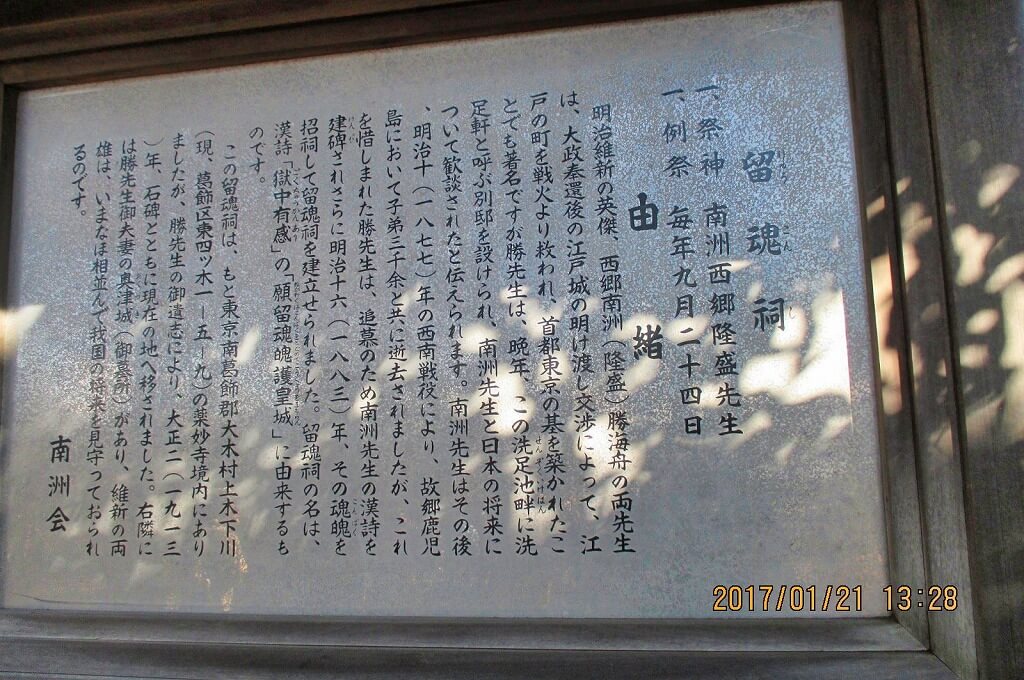 留魂祠
一、祭神 南洲西郷隆盛先生
一、例祭 毎年九月二十四日
由緒
明治維新の英傑、西郷南洲(隆盛)勝海舟の両先生
は、大政奉還後の江戸城の明け渡し交渉によって、江
戸の町を戦火より救われ、首都東京の基を築かれたこ
とでも著名ですが勝先生は、晩年、この洗足池畔に洗
足軒と呼ぶ別邸を設けられ、南洲先生と日本の将来に
ついて歓談されたと伝えられます。南洲先生はその後
、明治十(一八七七)年の西南戦役により、故郷鹿児
島において子弟三千余と共に逝去されましたが、これ
を惜しまれた勝先生は、追慕のため南洲先生の漢詩を
建碑されさらに明治十六(一八八三)年、その魂魄を
招祠して留魂祠を建立せられました。留魂祠の名は、
漢詩「獄中有感」の「願留魂魄護皇城」に由来するも
のです。
この留魂祠は、もと東京南葛飾郡大木村上木下川
(現、葛飾区東四ツ木一ー五ー九)の薬妙寺境内にあり
ましたが、勝先生の御遺志により、大正二(一九一三
)年、石碑とともに現在の地へ移されました。右隣に
は勝先生御夫妻の奥津城(御墓所)があり、維新の両
雄は、いまなほ相並んで我国の将来を見守っておられ
るのです。
南洲会
2017/01/21 13:28